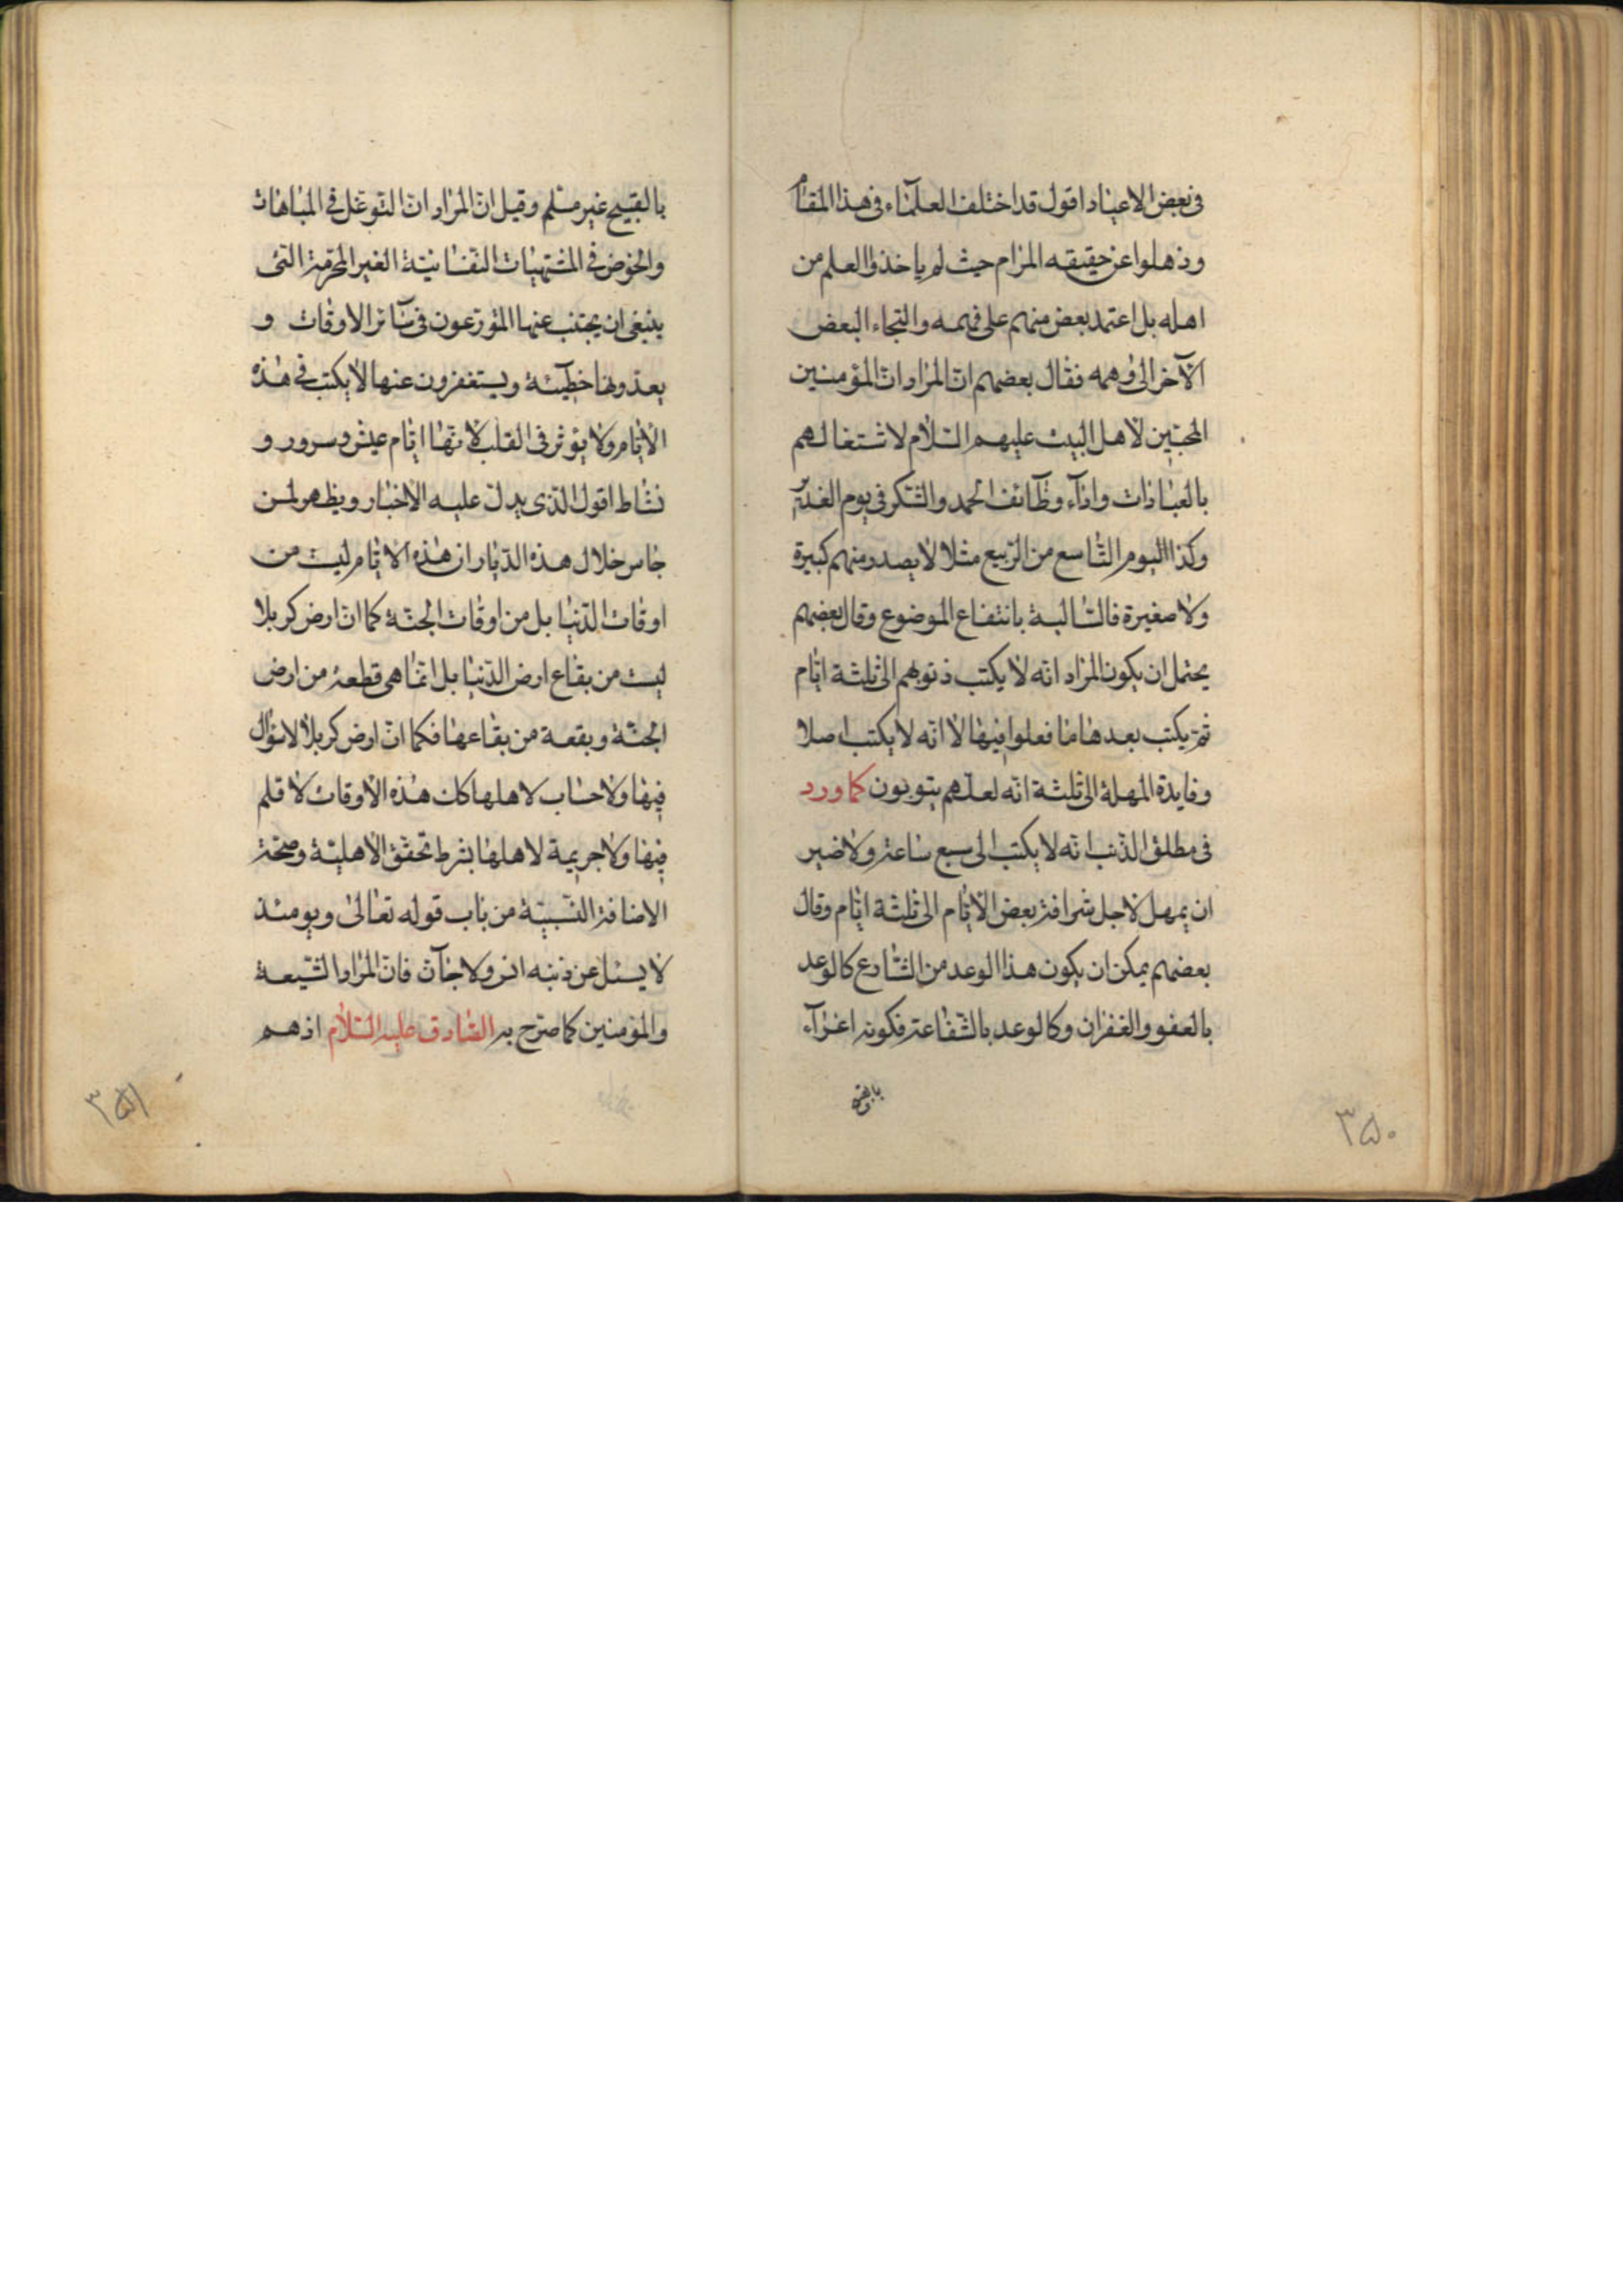 فى بعض الاعياد اقول قد اختلف العلمآء فى هذا المقام
وذهلوا عن حقيقه المرام حيث لم ياخذوا العلم من
اهله بل اعتمد بعض منهم على فهمه والتجاء البعض
الآخر الى وهمه فقال بعضهم انّ المراد انّ المؤمنين
المحبّين لاهل البيت عليهم السّلام لاشتغالهم
بالعبادات واداء وظآئف الحمد والشّكر فى يوم الغدير
وكذا اليوم التّاسع من الرّبيع مثلا لا يصدر منهم كبيرة
ولا صغيرة فالسّالبة بانتفاع الموضوع وقال بعضهم
يحتمل ان يكون المراد انّه لا يكتب ذنوبهم الى ثلثة ايّام
ثمّ يكتب بعدها ما فعلوا فيها لا انّه لا يكتب اصلا
وفايدة المهلة الى ثلثة انّه لعلّهم يتوبون كما ورد
فى مطلق الذّنب انّه لا يكتب الى سبع ساعة ولا ضير
ان يمهل لاجل شرافة بعض الايّام الى ثلثة ايّام وقال
بعضهم يمكن ان يكون هذا الوعد من الشّارع كالوعد
بالعفو والغفران وكالوعد بالشّفاعة فكونه اغرآء
٣٥٠
بالقبيح غير مسّلم وقيل انّ المراد انّ التّوغّل فى المباهات
والخوض فى المشتهيات النّفسانيّة الغير المحرّمة الّتى
ينبغى ان يجتنب عنها المتورّعون فى سآئر الاوقات و
يعدّونها خطيئة ويستغفرون عنها لا يكتب فى هذه
الايّام ولا يؤثر فى القلب لانّها ايّام عيش وسرور و
نشاط اقول الّذى يدلّ عليه الاخبار ويظهر لمن
جاس خلال هذه الدّيار ان هذه الايّام ليست من
اوقات الدّنيا بل من اوقات الجنّة كما انّ ارض كربلا
ليست من بقاع ارض الدّنيا بل انّما هى قطعة من ارض
الجنّة وبقعة من بقاعها فكما انّ ارض كربلا لا سؤال
فيها ولا حساب لاهلها كك هذه الاوقات لا قلم
فيها ولا جريمة لاهلها بشرط تحقّق الاهليّة وصحّة
الاضافة النّسبيّة من باب قوله تعالى ويومئذ
لا يسئل عن ذنبه انس ولا جآنّ فانّ المراد الشّيعة
والمؤمنين كما صرّح به الصّادق عليه السّلام اذ هم
٣٥١